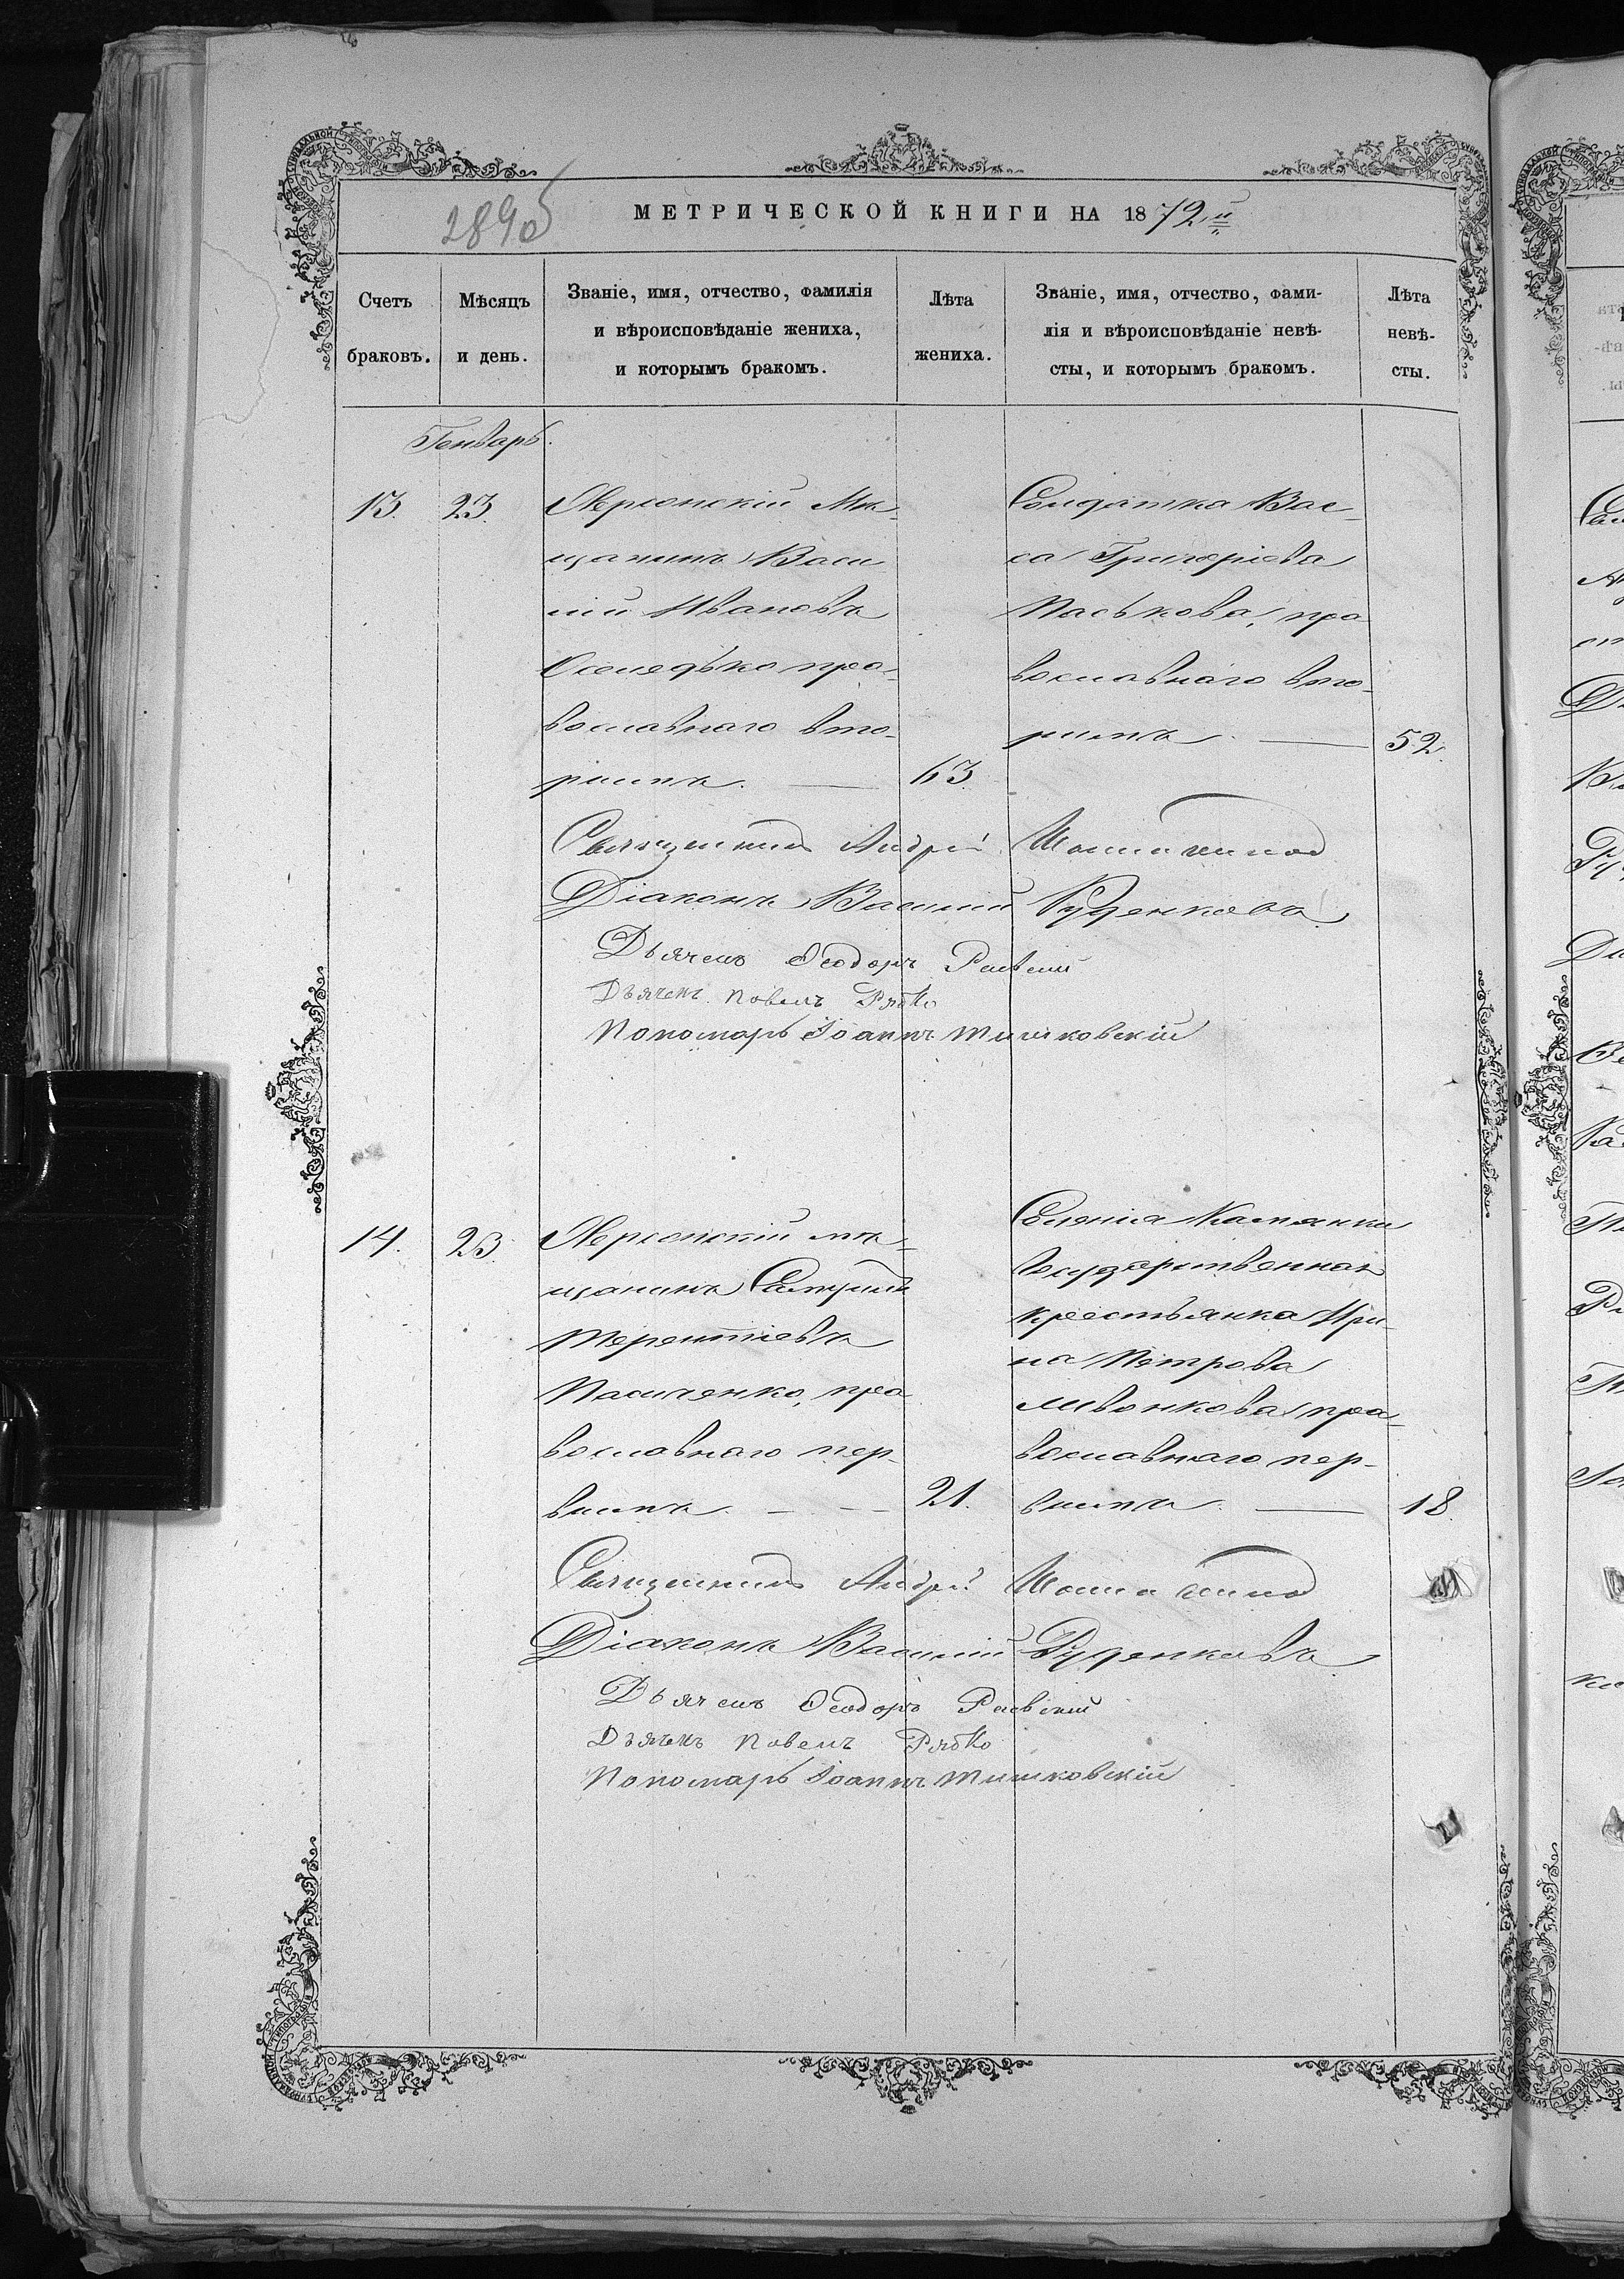 289об
МЕТРИЧЕСКОЙ КНИГИ НА 1872й
Счетъ браковъ.
Мѣсяцъ и день.
Званіе, имя, отчество, фамилія
и вѣроисповѣданіе жениха,
и которымъ бракомъ.
Лѣта жениха.
Званіе, имя, отчество, фами-
лія и вѣроисповѣданіе невѣ-
сты, и которымъ бракомъ.
Лѣта невѣ-
сты.
Генварь.
13.
23.
Херсонскій мѣ-
щанинъ Васи
лій Ивановъ
Оселедько пра-
вославнаго вто-
римъ.
63.
Солдатка Вас-
са Григоріева
Паськова, пра
вославнаго вто-
римъ
52.
Священникъ Андрей
Діаконъ Василій Руденковъ
Дьячекъ Ѳеодоръ Раевскій
Дьячекъ Павелъ Рябко
Пономарь Іоаннъ Тишковскій
14.
23
Херсонскій мѣ-
щанинъ
Терентіевъ
Пасиченко, пра
вославнаго пер-
вимъ.
21.
Селенія Камянки
Государственная
крестьянка Ири-
на Петрова
Ливонкова пра-
вославнаго пер-
вимъ
18.
Священникъ Андрей
Діаконъ Василій Руденковъ
Дьячекъ Ѳеодоръ Раевскій
Дьячекъ Павелъ Рябко
Пономарь Іоаннъ Тишковскій